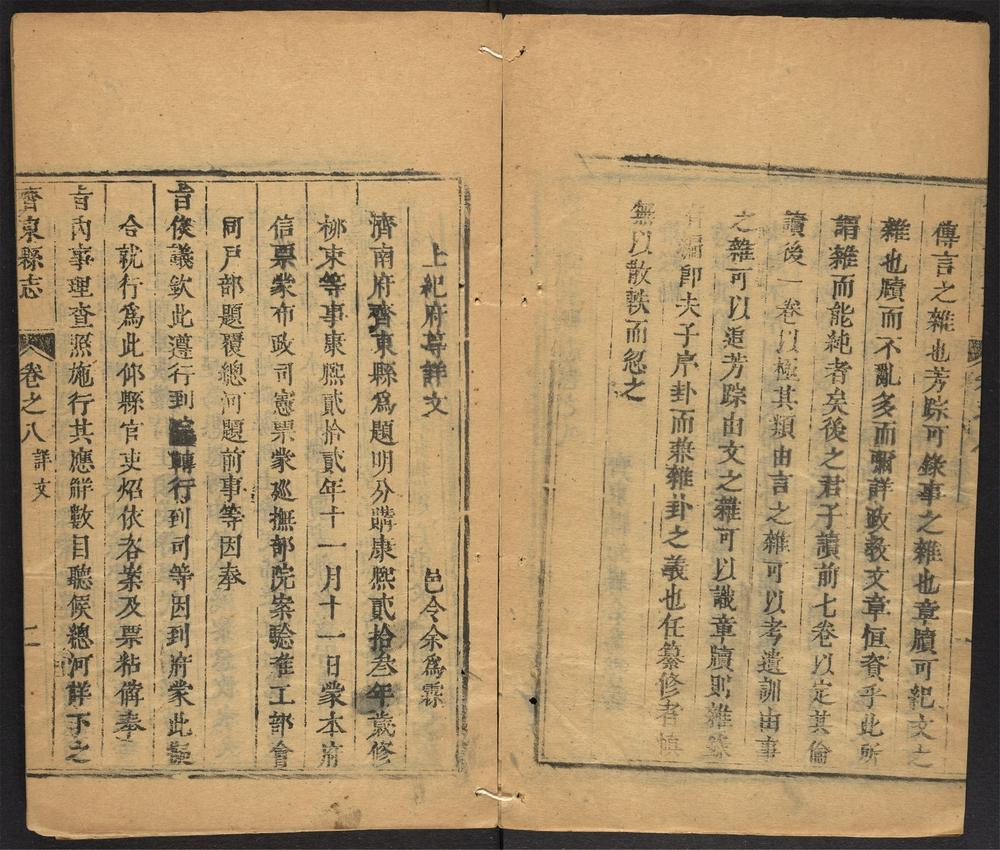 傳言之雜也芳踪可錄事之雜也章牘可紀文之
雜也牘而不亂多而彌詳政敎文章恒賚乎此所
謂雜而能純者矣後之君子讀前七卷以定其倫
讀後一卷以極其類由言之雜可以考遺訓由事
之雜可以追芳踪由文之雜可以識章牘則雜
編卽夫子序卦而兼雜卦之義也任纂修者愼
無以散軼而忽之
上紀府尊詳文
邑令余爲霖
濟南府齊東縣爲題明分購康熙貳拾叁年歲修
柳束等事康熙貳拾貳年十一月十一日蒙本府
信票蒙布政司憲票蒙廵撫部院案驗准工部會
同戶部題覆總河題前事等因奉
旨依議欽此遵行到院轉行到司等因到府蒙此擬
合就行爲此仰縣官吏炤依各案及票粘備奉
旨內事理查照施行其應解數目聽候總河詳下之
齊東縣志
卷之八
詳文